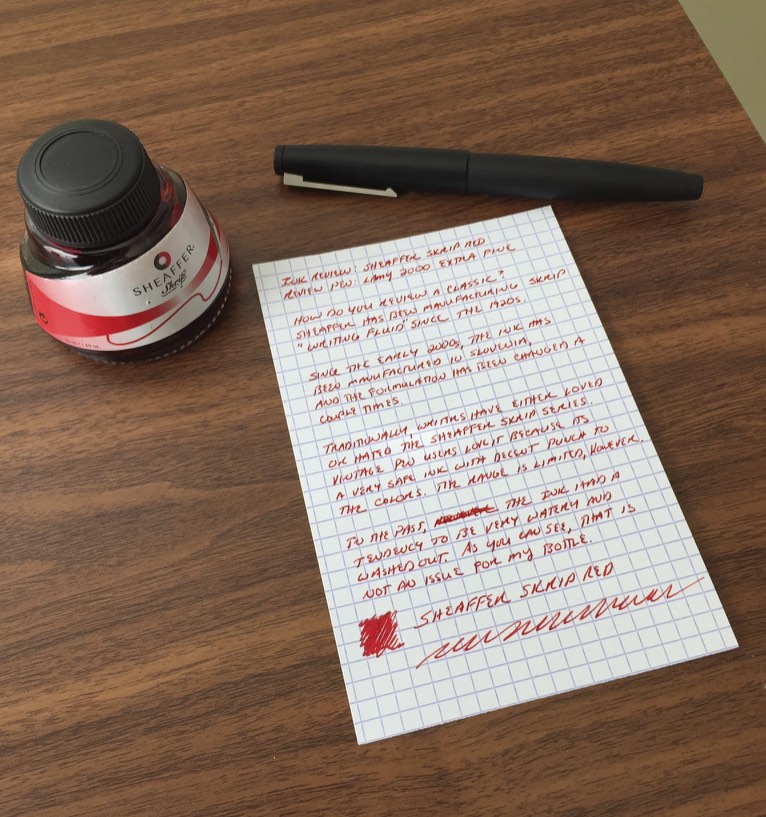 SHEAFFER
Skrip
INK REVIEW: SHEAFFER SKRIP RED
REVIEW PEN: LAMY 2000 EXTRA FINE
HOW DO YOU REVIEW A CLASSIC?
SHEAFFER HAS BEEN MANUFACTURING SKRIP
"WRITING FLUID" SINCE THE 1920S.
SINCE THE EARLY 2000S, THE INK HAS
BEEN MANUFACTURED IN SLOVENIA,
AND THE FORMULATION HAS BEEN CHANGED A
COUPLE TIMES.
TRADITIONALLY, WRITERS HAVE EITHER LOVED
OR HATED THE SHEAFFER SKRIP SERIES.
VINTAGE PEN USERS LOVE IT BECAUSE ITS
A VERY SAFE INK WITH DECENT PUNCH TO
THE COLORS. THE RANGE IS LIMITED, HOWEVER.
IN THE PAST, THE INK HAD A
TENDENCY TO BE VERY WATERY AND
WASHED OUT. AS YOU CAN SEE, THAT IS
NOT AN ISSUE FOR MY BOTTLE.
SHEAFFER SKRIP RED